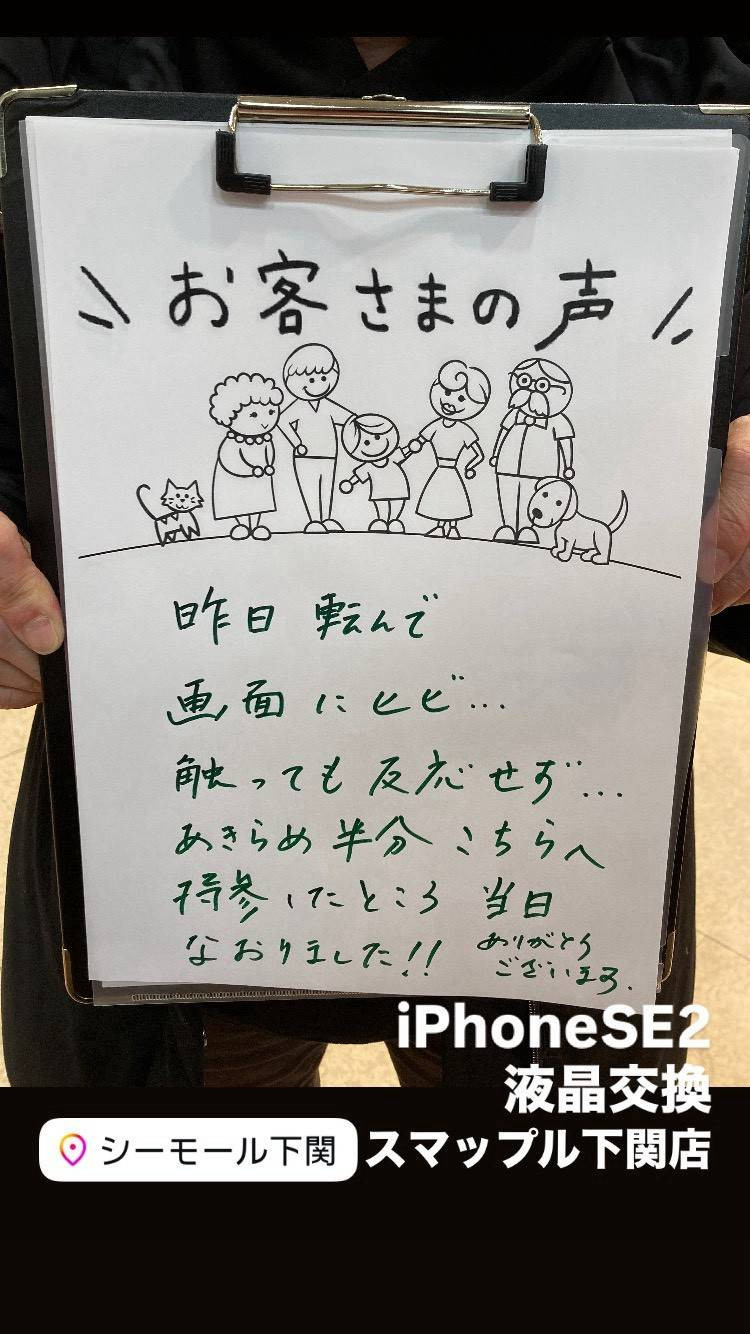 お客さまの声
昨日 転んで
画面にヒビ…
触っても反応せず…
あきらめ半分こちらへ
持参したところ 当日
なおりました!! ありがとう
ございます。
iPhoneSE2
液晶交換
シーモール下関 スマップル下関店